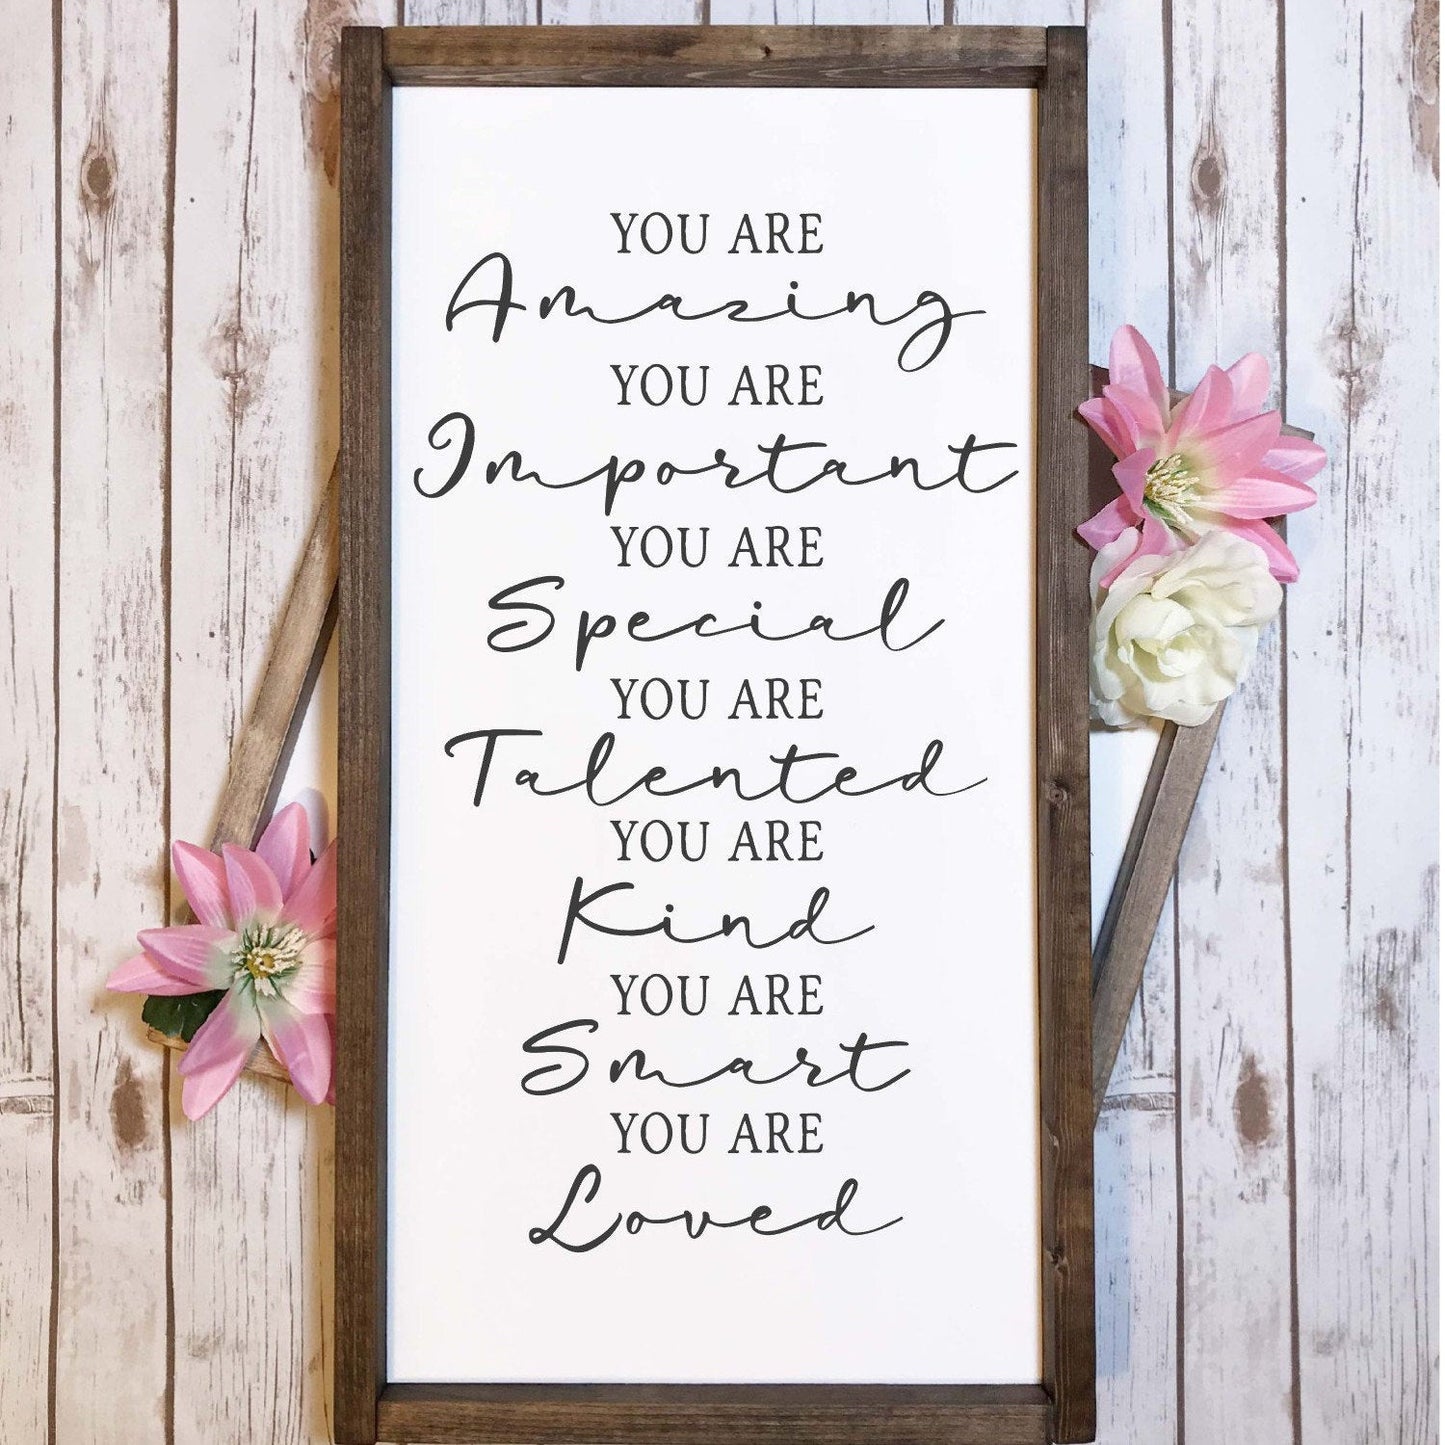 YOU ARE
Amazing
YOU ARE
Important
YOU ARE
Special
YOU ARE
Talented
YOU ARE
Kind
YOU ARE
Smart
YOU ARE
Loved